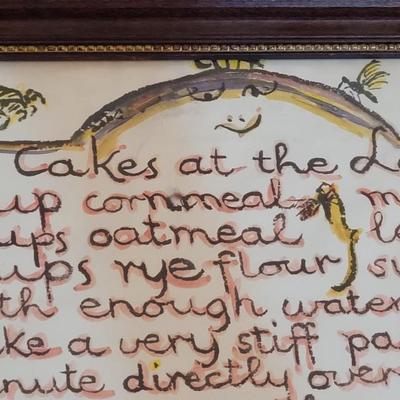 Cakes at the
up cornmeal
ups oatmeal
ups rye flour
th enough water
ke a very stiff pa
nute directly over